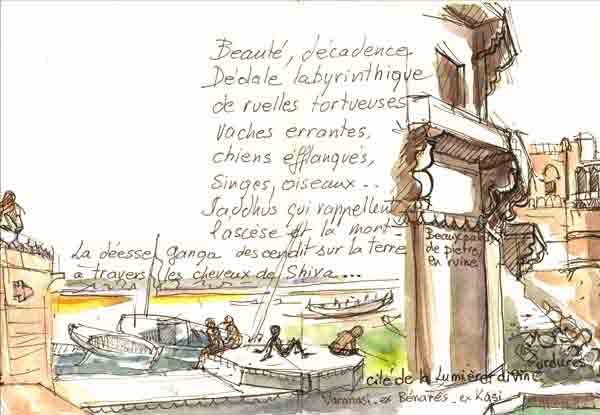 Beauté, décadence
Dédale labyrinthique
de ruelles tortueuses
Vaches errantes,
chiens éfflanqués,
Singes, oiseaux...
Saddhus qui rappellent
l'ascèse et la mort
La déesse ganga descendit sur la terre
a travers les cheveux de Shiva....
Beaux palais
de pierre
en ruine
ordures
cité de la Lumière divine
Varanasi - ex Bénarès - ex Kasi